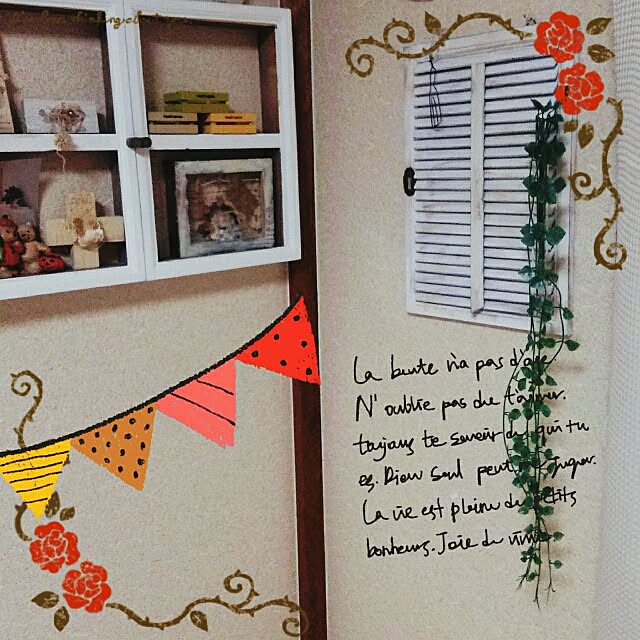 La beute n'a pas d'age
N'oublie pas de t'aimer.
toujours te souvenir de qui tu
es. Dieu seul peut me juger.
La vie est pleine de petits
bonheurs. Joie de vivre